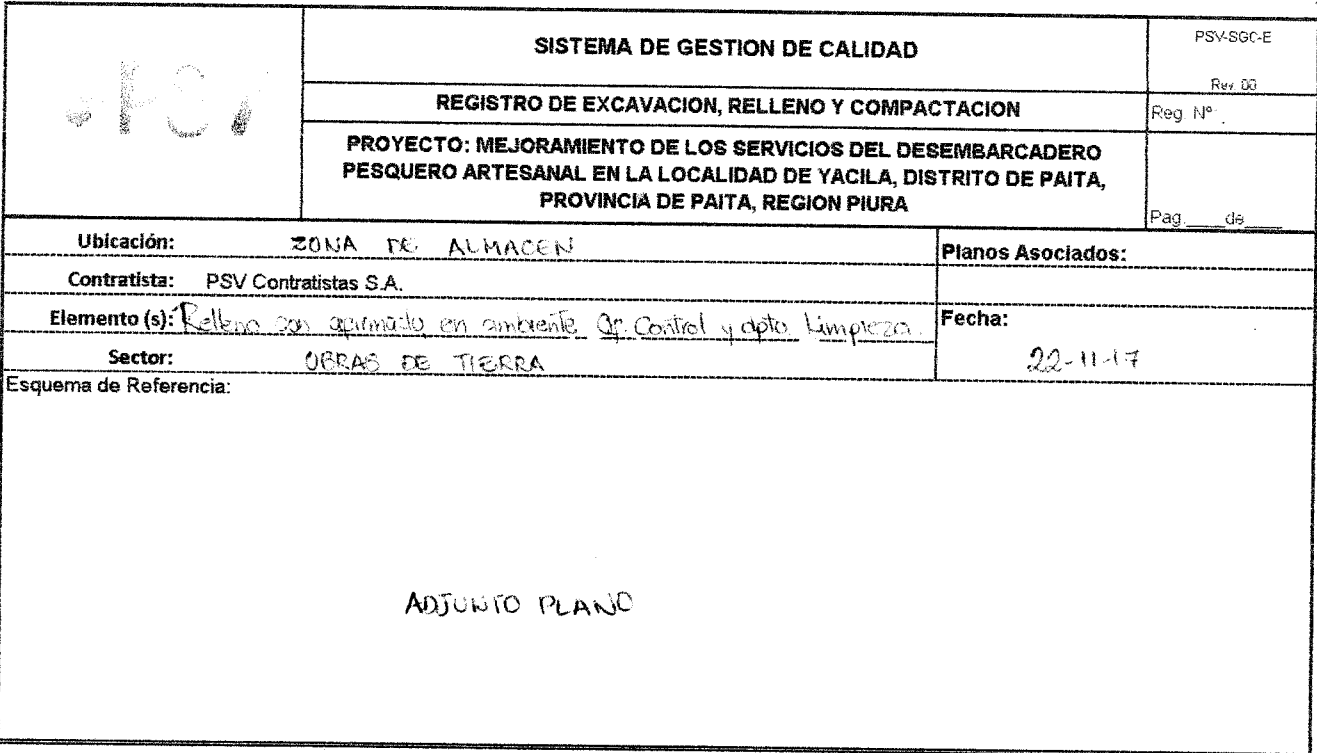 PSV
SISTEMA DE GESTION DE CALIDAD
PSV-SGC-E
Rev. 00
REGISTRO DE EXCAVACION, RELLENO Y COMPACTACION
Reg. Nº
PROYECTO: MEJORAMIENTO DE LOS SERVICIOS DEL DESEMBARCADERO
PESQUERO ARTESANAL EN LA LOCALIDAD DE YACILA, DISTRITO DE PAITA,
PROVINCIA DE PAITA, REGION PIURA
Pag.____de____
Ubicación: ZONA DE ALMACEN
Planos Asociados:
Contratista: PSV Contratistas S.A.
Elemento (s): Relleno con afirmado en ambiente Of. Control y dpto. Limpieza.
Fecha:
Sector: OBRAS DE TIERRA
22-11-17
Esquema de Referencia:
ADJUNTO PLANO